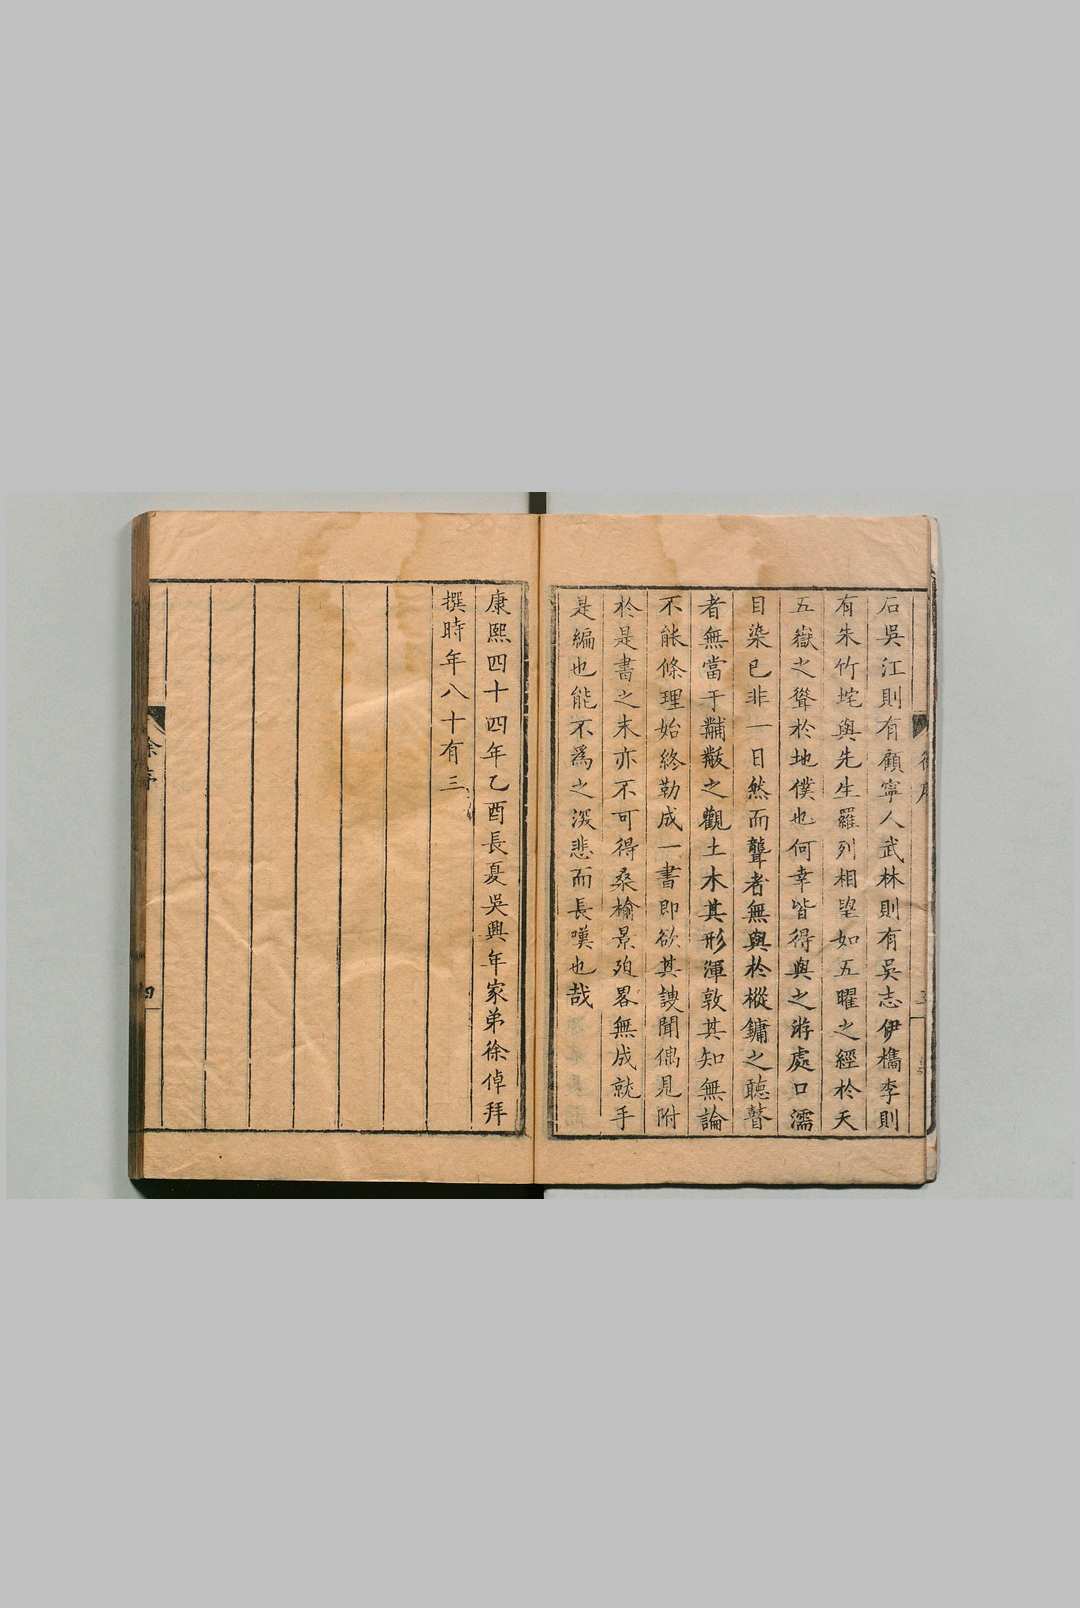 石吳江則有顧寧人武林則有吳志伊檇李則
有朱竹垞與先生羅列相望如五曜之經於天
五嶽之聳於地僕也何幸皆得與之游處口濡
目染已非一日然而聾者無與於樅鏞之聽瞽
者無當于黼黻之觀土木其形渾敦其知無論
不能條理始終勒成一書即欲其謏聞偶見附
於是書之末亦不可得桑榆景迫畧無成就手
是編也能不爲之沒悲而長嘆也哉
康熙四十四年乙酉長夏吳興年家弟徐倬拜
撰時年八十有三
徐序
四